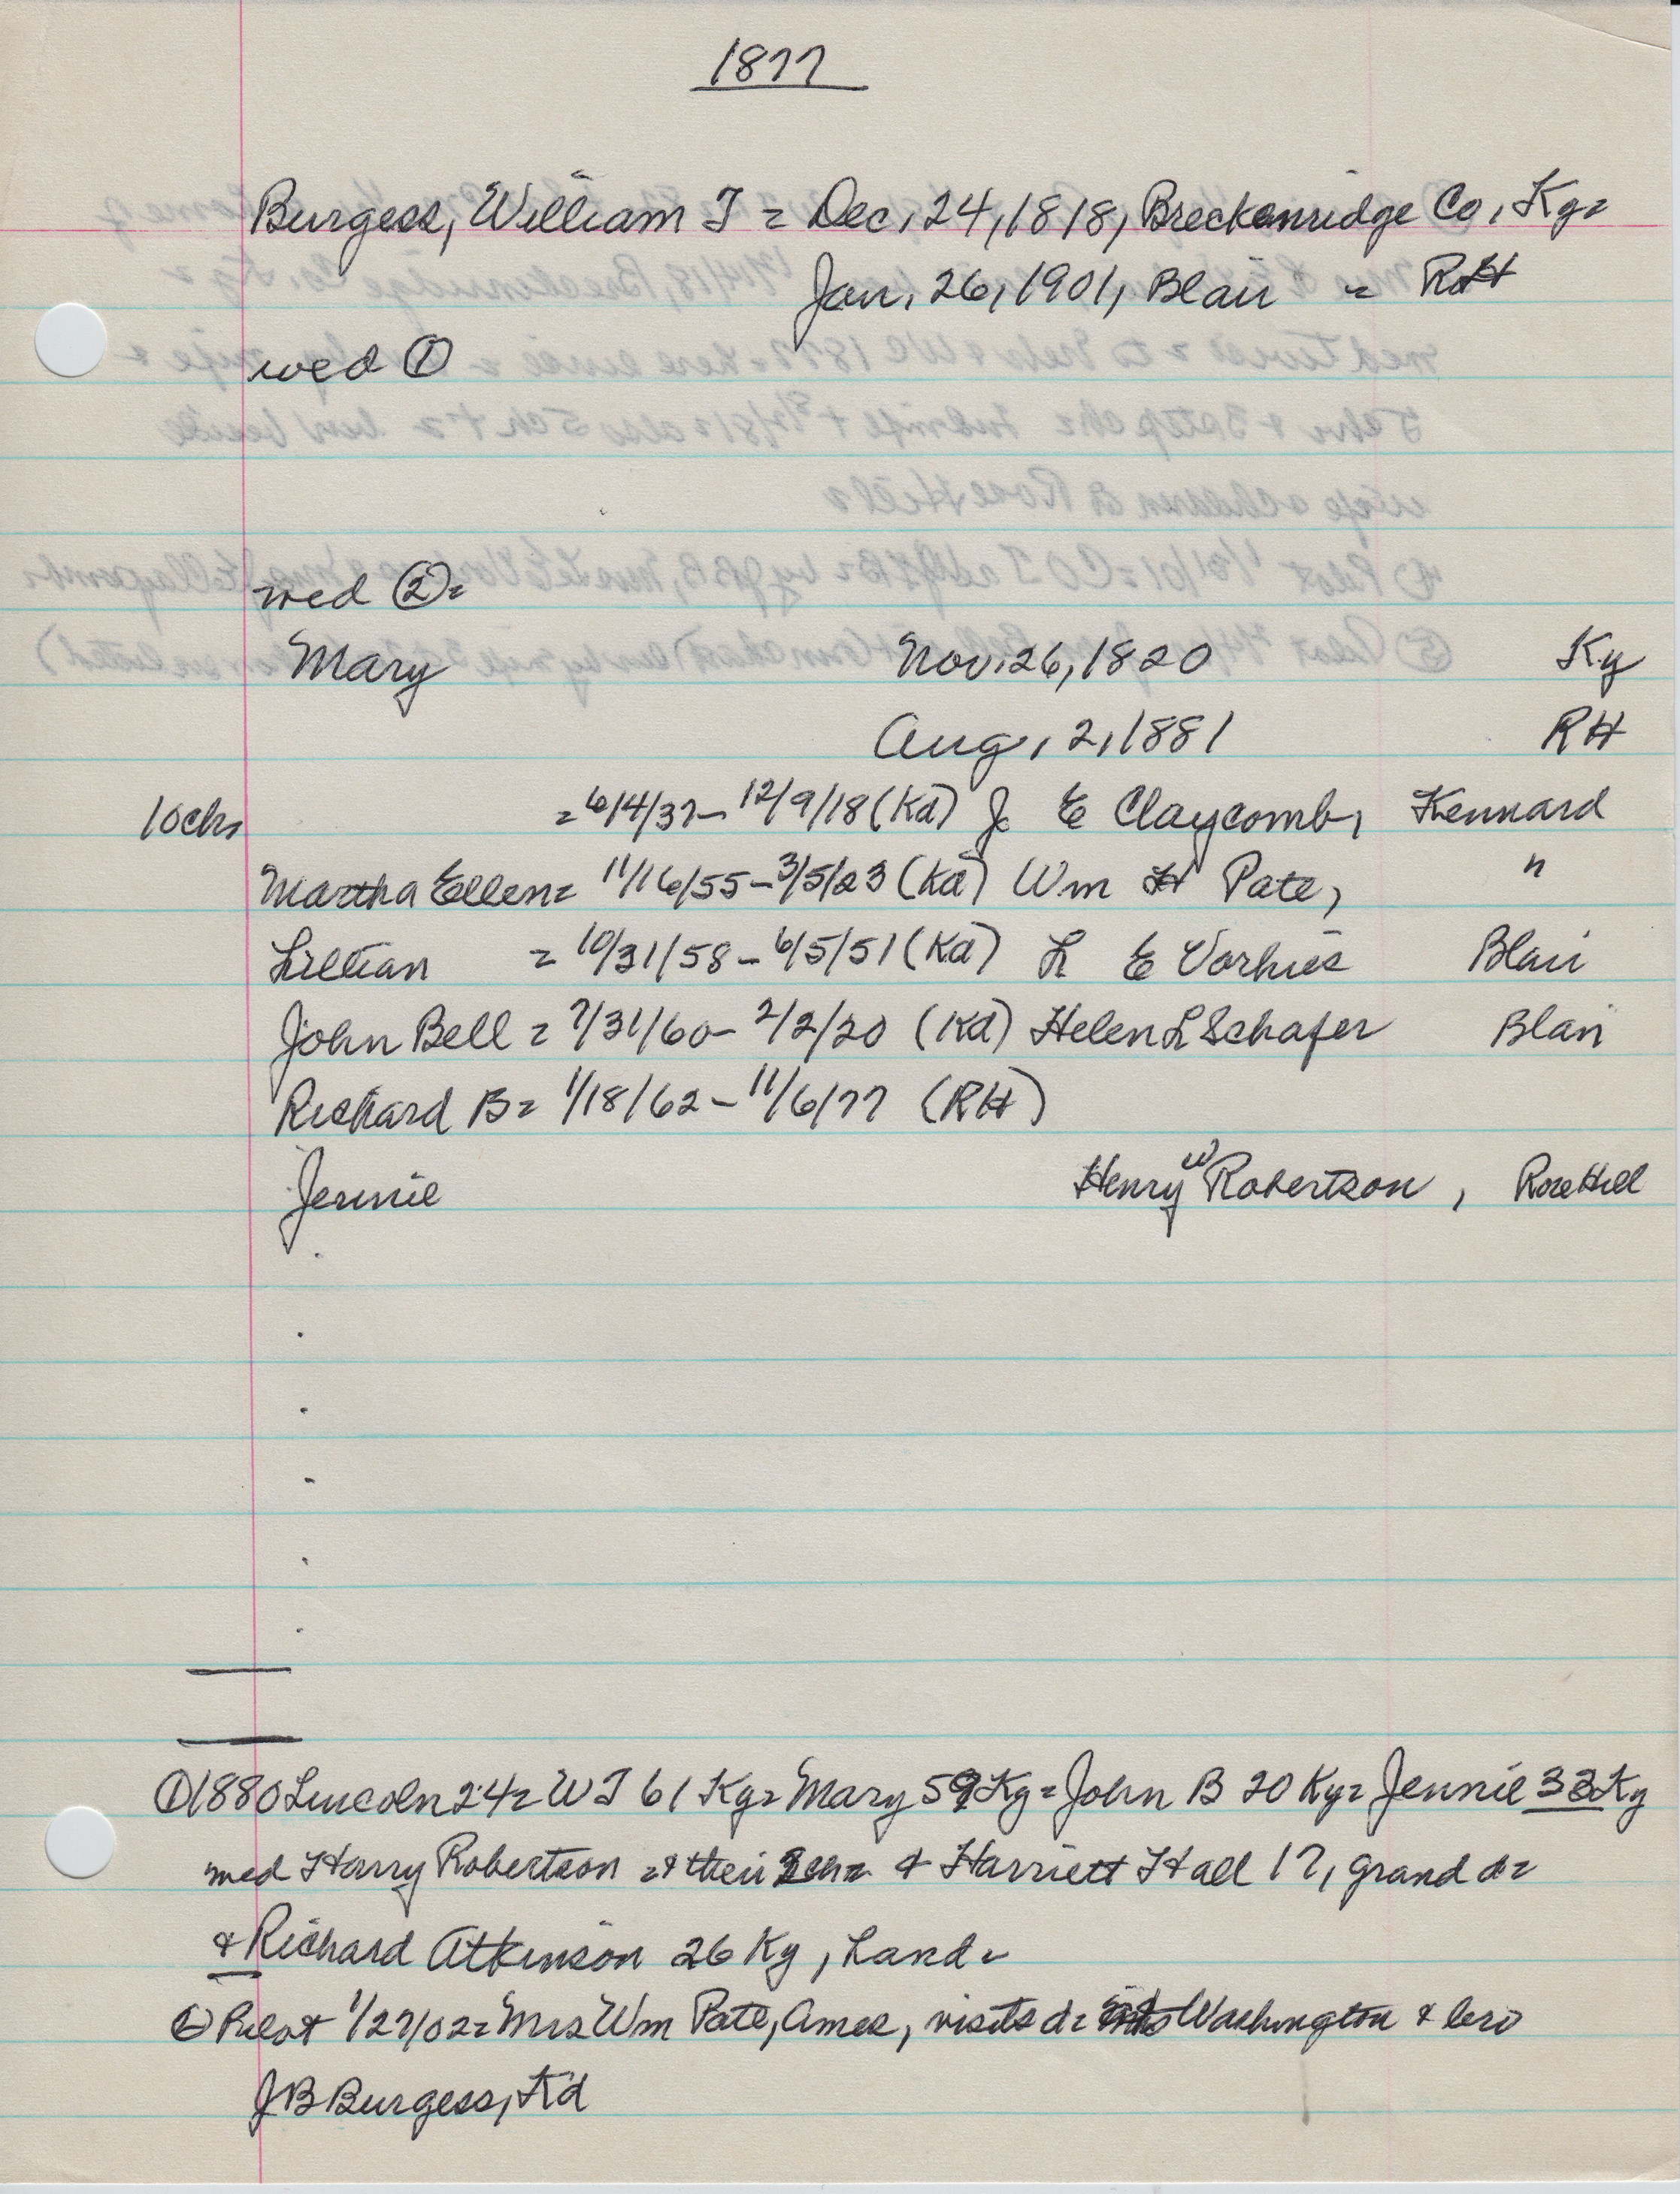 1877
Burgess, William T = Dec, 24, 1818, Breckenridge Co, Ky=
Jan, 26, 1901, Blair = RH
wed ①
wed ②=
Mary Nov. 26, 1820 Ky
Aug, 2, 1881 RH
10chs = 6/4/37 - 12/9/18 (Kd) J E Claycomb, Kennard
Martha Ellen= 11/16/55 - 3/5/23 (Kd) Wm H Pate, "
Lillian = 10/31/58 - 6/5/51 (Kd) L E Vorhies Blair
John Bell = 7/31/60 - 2/2/20 (Kd) Helen L Schafer Blair
Richard B= 1/18/62 - 11/6/77 (RH)
Jennie Henry W Robertson, Rose Hill
① 1880 Lincoln 24= W T 61 Ky= Mary 59 Ky= John B 20 Ky= Jennie 33 Ky
wed Harry Robertson =& their ch= & Harriett Hall 17, grand d=
& Richard Atkinson 26 Ky, hand=
② Pilot 1/27/02= Mrs Wm Pate, Ames, visits d= Washington & bro
J B Burgess, Kd